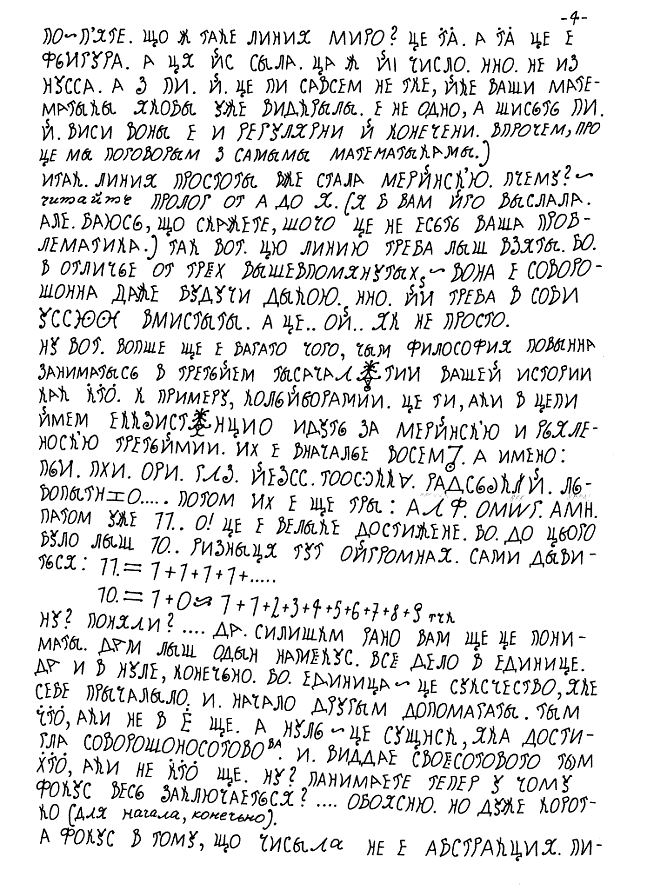 -4-
ПО~П'ЯТЕ. ЩО Ж ТАКЕ ЛИНИЯ МИРО? ЦЕ ТА. А ТА ЦЕ Е
ФЬИГУРА. А ЦЯ ЙС СЫЛА. ЦА Ж ЙІ ЧИСЛО. ННО. НЕ ИЗ
НУССА. А З ПИ. Й. ЦЕ ПИ САВСЕМ НЕ ТКЕ, ЙКЕ ВАШИ МАТЕ-
МАТЫКЫ ЯКОВЫ УЖЕ ВИДКРЫЛЫ. Е НЕ ОДНО, А ШИСЬТЬ ПИ.
Й. ВИСИ ВОНЫ Е И РЕГУЛЯРНИ Й КОНЕЧЕНИ. ВПРОЧЕМ, ПРО
ЦЕ МЫ ПОГОВОРЫМ З САМЫМЫ МАТЕМАТЫКАМЫ.)
ИТАК. ЛИНИЯ ПРОСТОТЫ ВЖЕ СТАЛА МЕРЙНСК'Ю. ПЧЕМУ?~
читайте ПРОЛОГ ОТ А ДО Я. (Я Б ВАМ ЙГО ВЫСЛАЛА.
АЛЕ. БАЮСЬ, ЩО СКАЖЕТЕ, ШОЧО ЦЕ НЕ ЕСЬТЬ ВАША ПРОБ-
ЛЕМАТИКА.) ТАК ВОТ. ЦЮ ЛИНИЮ ТРЕБА ЛЫШ ВЗЯТЫ. БО.
В ОТЛИЧЬЕ ОТ ТРЕХ ВЫШЕВПОМЯНУТЫХ, ~ ВОНА Е СОВОРО-
ШОННА ДАЖЕ БУДУЧИ ДЫКОЮ. ННО. ЙЙ ТРЕБА В СОБИ
ВМИСТЫТЫ. А ЦЕ.. ОЙ.. ЯК НЕ ПРОСТО.
НУ ВОТ. ВОПШЕ ЩЕ Е БАГАТО ЧОГО, ЧЫМ ФИЛОСОФИЯ ПОВЫННА
ЗАНИМАТЫСЬ В ТРЕТЬЙЕМ ТИИ ВАШЕЙ ИСТОРИИ
КАК КТО. К ПРИМЕРУ, КОЛЬЙБОРАМИИ. ЦЕ ТИ, АКИ В ЦЕПИ
ЙМЕМ ИДУТЬ ЗА МЕРЙНСК'Ю И РЬЯЛЕ-
НОСК'Ю ТРЕТЬЙМИИ. ИХ Е ВНАЧАЛЬЕ ВОСЕМ. А ИМЕНО:
ПЬИ. ПХИ. ОРИ. ГЛЗ. ЙЕЗСС. ЛЬ-
..... ПОТОМ ИХ Е ЩЕ ТРЫ: АЛФ. ОМИГ. АМН.
ПАТОМ УЖЕ 11.. О! ЦЕ Е ВЕЛЫКЕ ДОСТИЖЕНЕ. БО. ДО ЦЬОГО
БУЛО ЛЫШ 10.. РИЗНЫЦЯ ТУТ ОЙГРОМНАЯ. САМИ ДЫВИ-
ТЬСЯ: 11.= 1+1+1+1+.....
10.= 1+0 ∽ 1+1+2+3+4+5+6+7+8+9 тчк
НУ? ПОНЯЛИ? .... ДР. СИЛИШКМ РАНО ВАМ ЩЕ ЦЕ ПОНИ-
МАТЫ. ДРМ ЛЫШ ОДЫН НАМЕКУС. ВСЕ ДЕЛО В ЕДИНИЦЕ.
ДР И В НУЛЕ, КОНЕЧЬНО. БО. ЕДИНИЦА~ЦЕ СУКСЧЕСТВО, ЯКЕ
СЕБЕ ПРЫЧАЛЫЛО. И. НАЧАЛО ДРУГЫМ ДОПОМАГАТЫ. ТЫМ
ЧТО, АКИ НЕ В Ё ЩЕ. А НУЛЬ~ЦЕ СУЩНСК, ЯКА ДОСТИ-
ГЛА СОВОРОШОНОСОТОВОВА. И. ВИДДАЕ СВОЕСОТОВОТО ТЫМ
ХТО, АКИ НЕ КТО ЩЕ. НУ? ПАНИМАЕТЕ ТЕПЕР У ЧОМУ
ФОКУС ВЕСЬ ЗАКЛЮЧАЕТЬСЯ? .... ОБОЯСНЮ. НО ДУЖЕ КОРОТ-
КО (для начала, конечьно).
А ФОКУС В ТОМУ, ЩО ЧИСЫЛА НЕ Е АБСТРАКЦИЯ. ПИ-